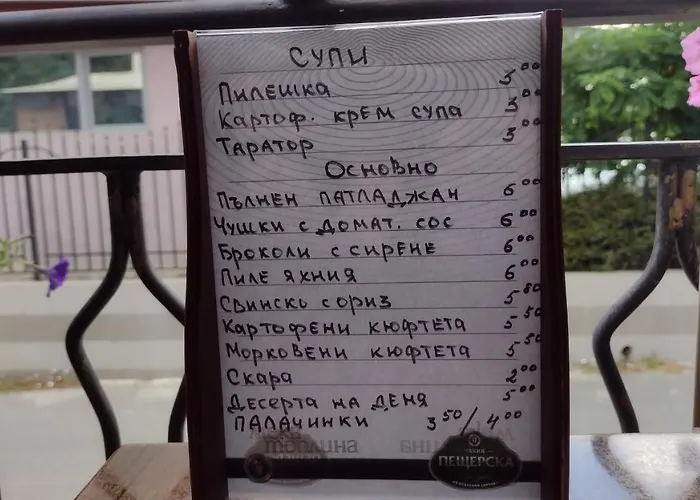 СУПИ
ПИЛЕШКА 3⁰⁰
КАРТОФ. КРЕМ СУПА 3⁰⁰
ТАРАТОР 3⁰⁰
ОСНОВНО
ПЪЛНЕН ПАТЛАДЖАН 6⁰⁰
ЧУШКИ С ДОМАТ. СОС 6⁰⁰
БРОКОЛИ С СИРЕНЕ 6⁰⁰
ПИЛЕ ЯХНИЯ 6⁰⁰
СВИНСКО С ОРИЗ 5⁸⁰
КАРТОФЕНИ КЮФТЕТА 5⁵⁰
МОРКОВЕНИ КЮФТЕТА 5⁵⁰
СКАРА 2⁰⁰
ДЕСЕРТА НА ДЕНЯ 5⁰⁰
ПАЛАЧИНКИ 3⁵⁰/4⁰⁰
топлина
ПЕЩЕРСКА